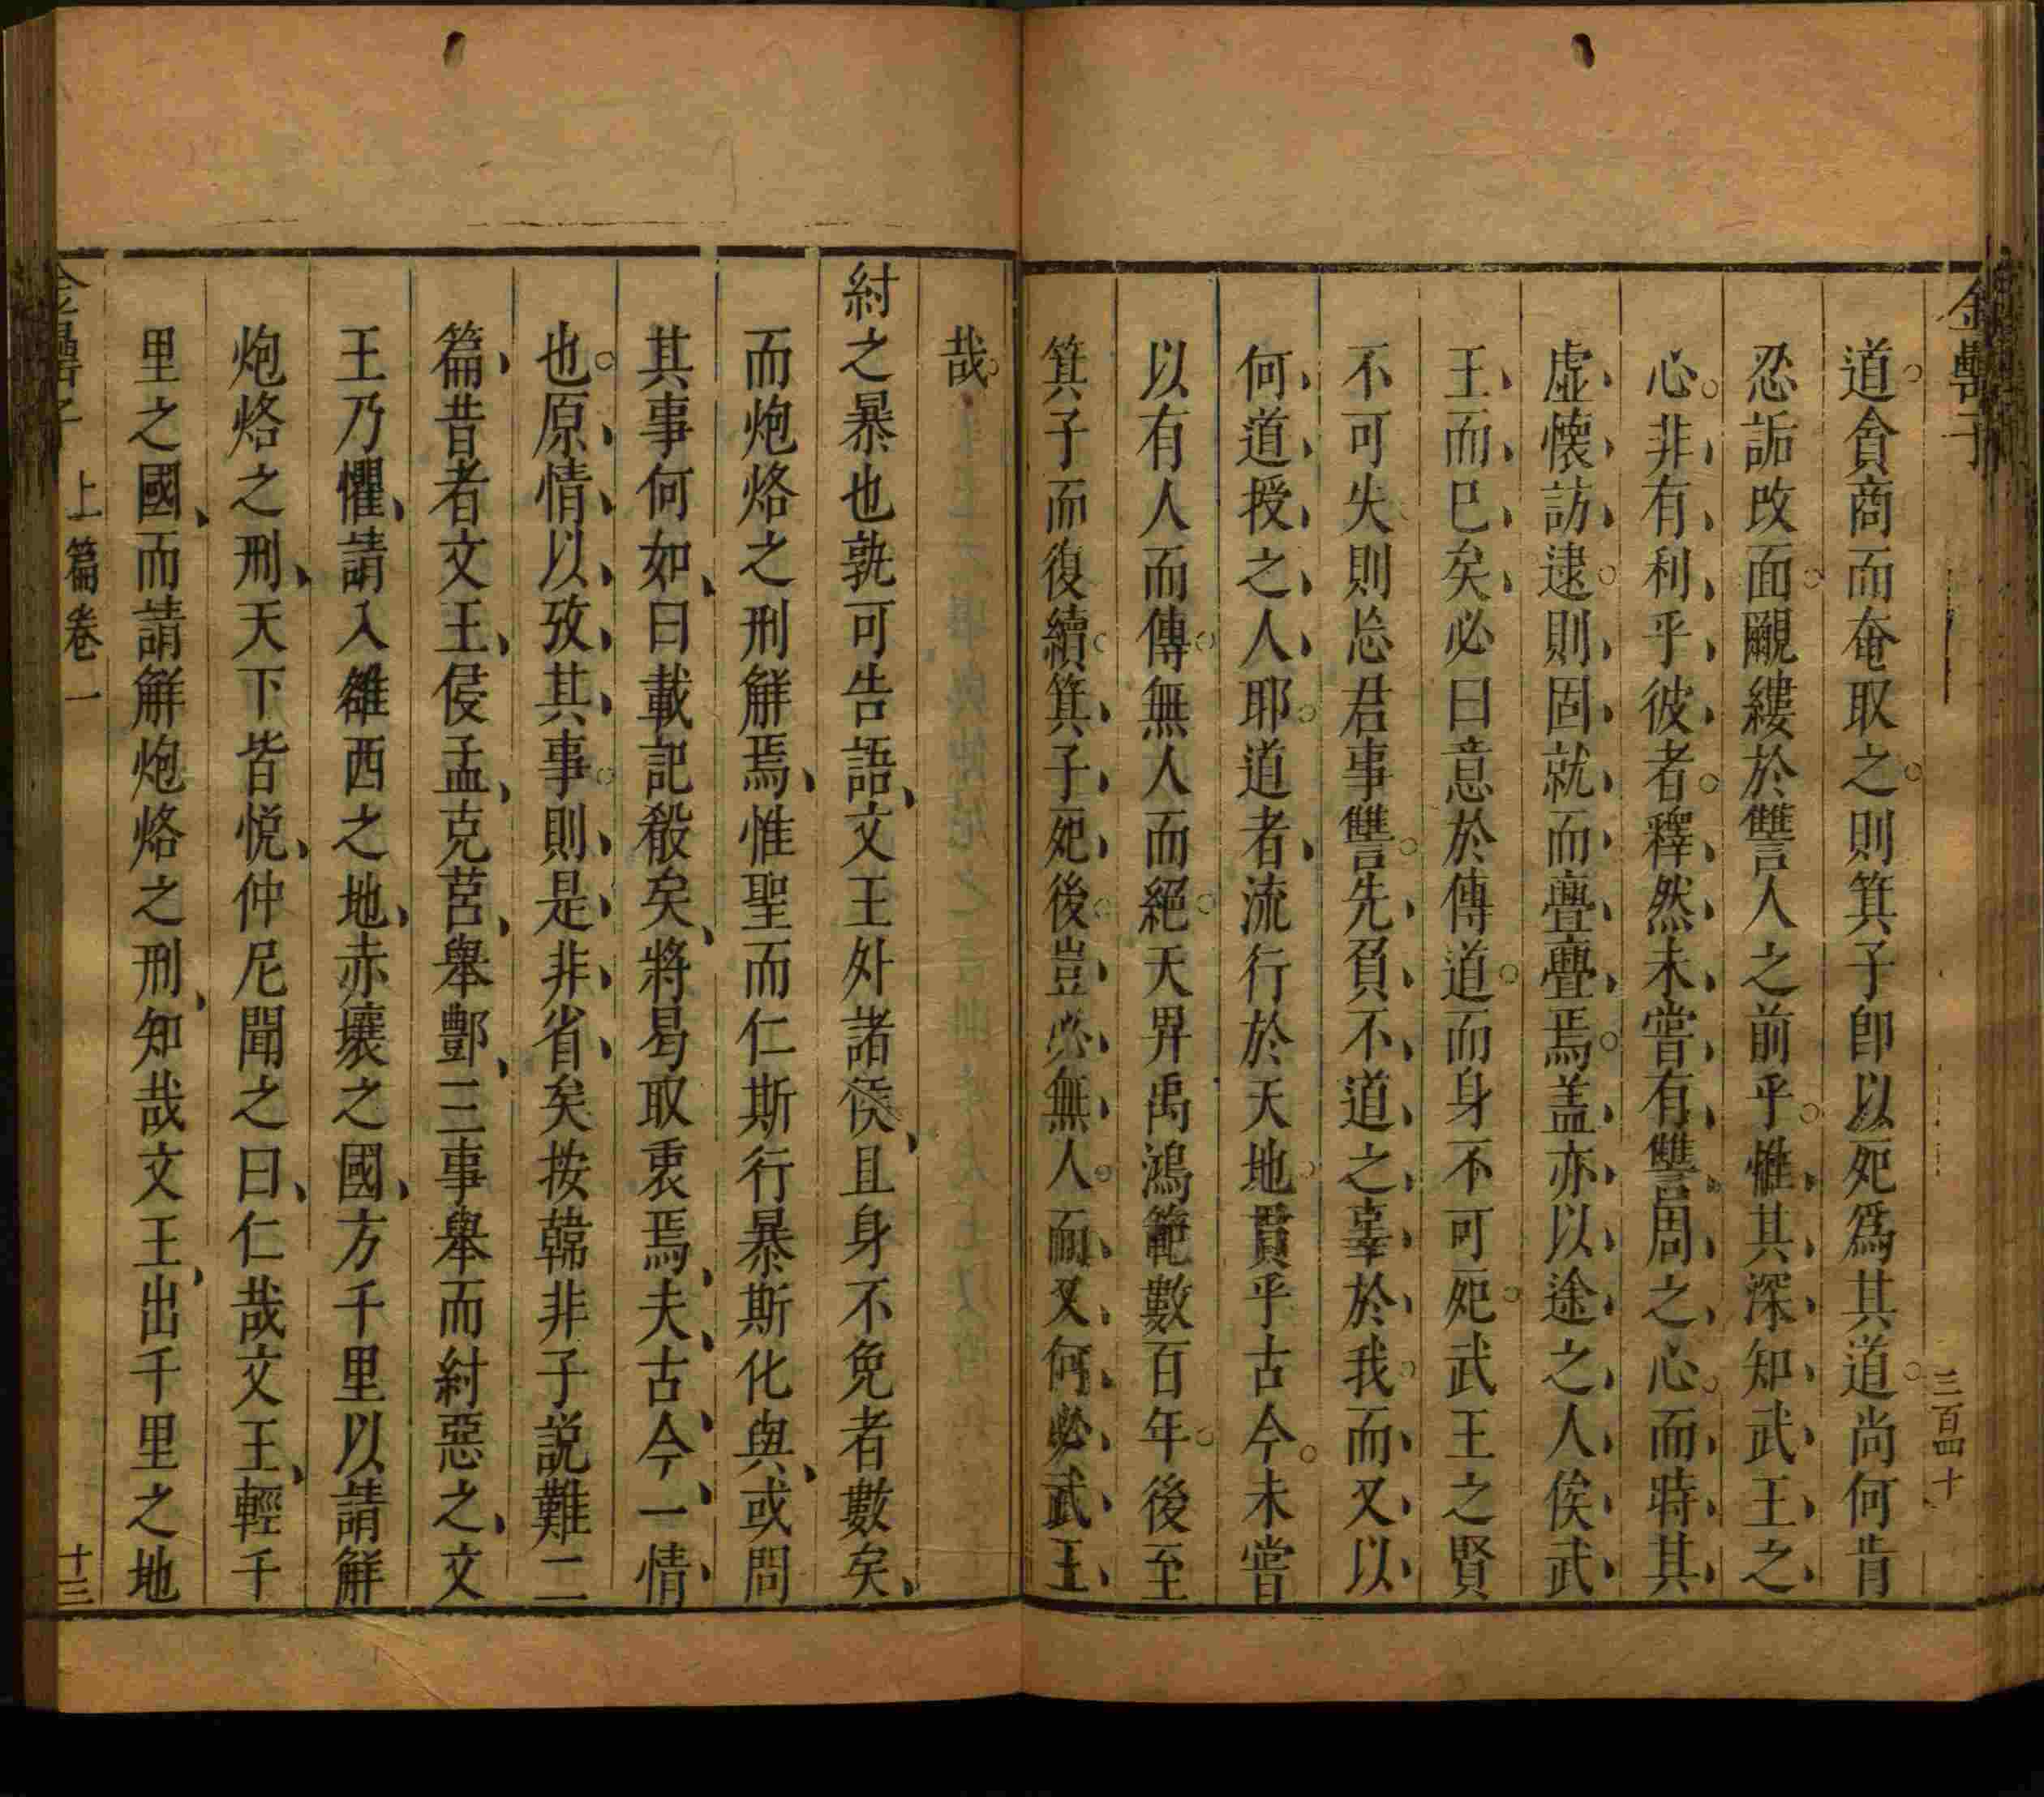 金罍子
三百四十
道貪商而奄取之則箕子卽以死爲其道尚何肯
忍詬攺面覼縷於讐人之前乎惟其深知武王之
心非有利乎彼者釋然未嘗有讐周之心而時其
虛懷訪逮則固就而亹亹焉盖亦以途之人俟武
王而巳矣必曰意於傳道而身不可死武王之賢
不可失則怂君事讐先負不道之辜於我而又以
何道授之人耶道者流行於天地貫乎古今未嘗
以有人而傳無人而絕天畀禹鴻範數百年後至
箕子而復續箕子死後豈必無人而又何必武王
哉
紂之暴也孰可告語文王外諸侯且身不免者數矣
而炮烙之刑解焉惟聖而仁斯行暴斯化與或問
其事何如曰載記殽矣將曷取衷焉夫古今一情
也原情以攷其事則是非省矣按韓非子説難二
篇昔者文王侵孟克莒舉酆三事舉而紂惡之文
王乃懼請入雒西之地赤壤之國方千里以請解
炮烙之刑天下皆悅仲尼聞之曰仁哉文王輕千
里之國而請解炮烙之刑知哉文王出千里之地
上篇卷一
十三